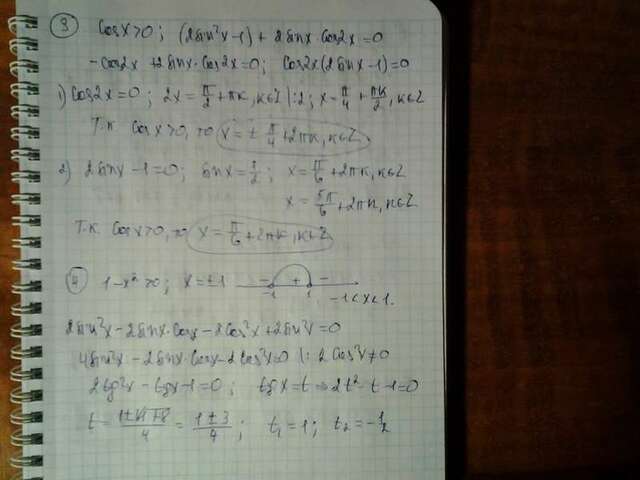 ③ cos x>0; (2sin²x-1)+2sinx·cos2x=0
-cos2x+2sinx·cos2x=0; cos2x(2sinx-1)=0
1) cos2x=0; 2x=π/2+πк, к∈Z |:2; x=π/4+πк/2, к∈Z
Т.к. cosx>0, то x=± π/4+2πк, к∈Z
2) 2sinx-1=0; sinx=1/2; x=π/6+2πк, к∈Z
x=5π/6+2πк, к∈Z
Т.к. cosx>0, то x=π/6+2πк, к∈Z
④ 1-x²>0; x=±1 - + - -1 1 -1<x<1.
2sin²x-2sinx·cosx-2cos²x+2sin²x=0
4sin²x-2sinx·cosx-2cos²x=0 |: 2cos²x≠0
2tg²x-tgx-1=0; tgx=t ⇒ 2t²-t-1=0
t=(1±√1+8)/4=(1±3)/4; t₁=1; t₂=-1/2